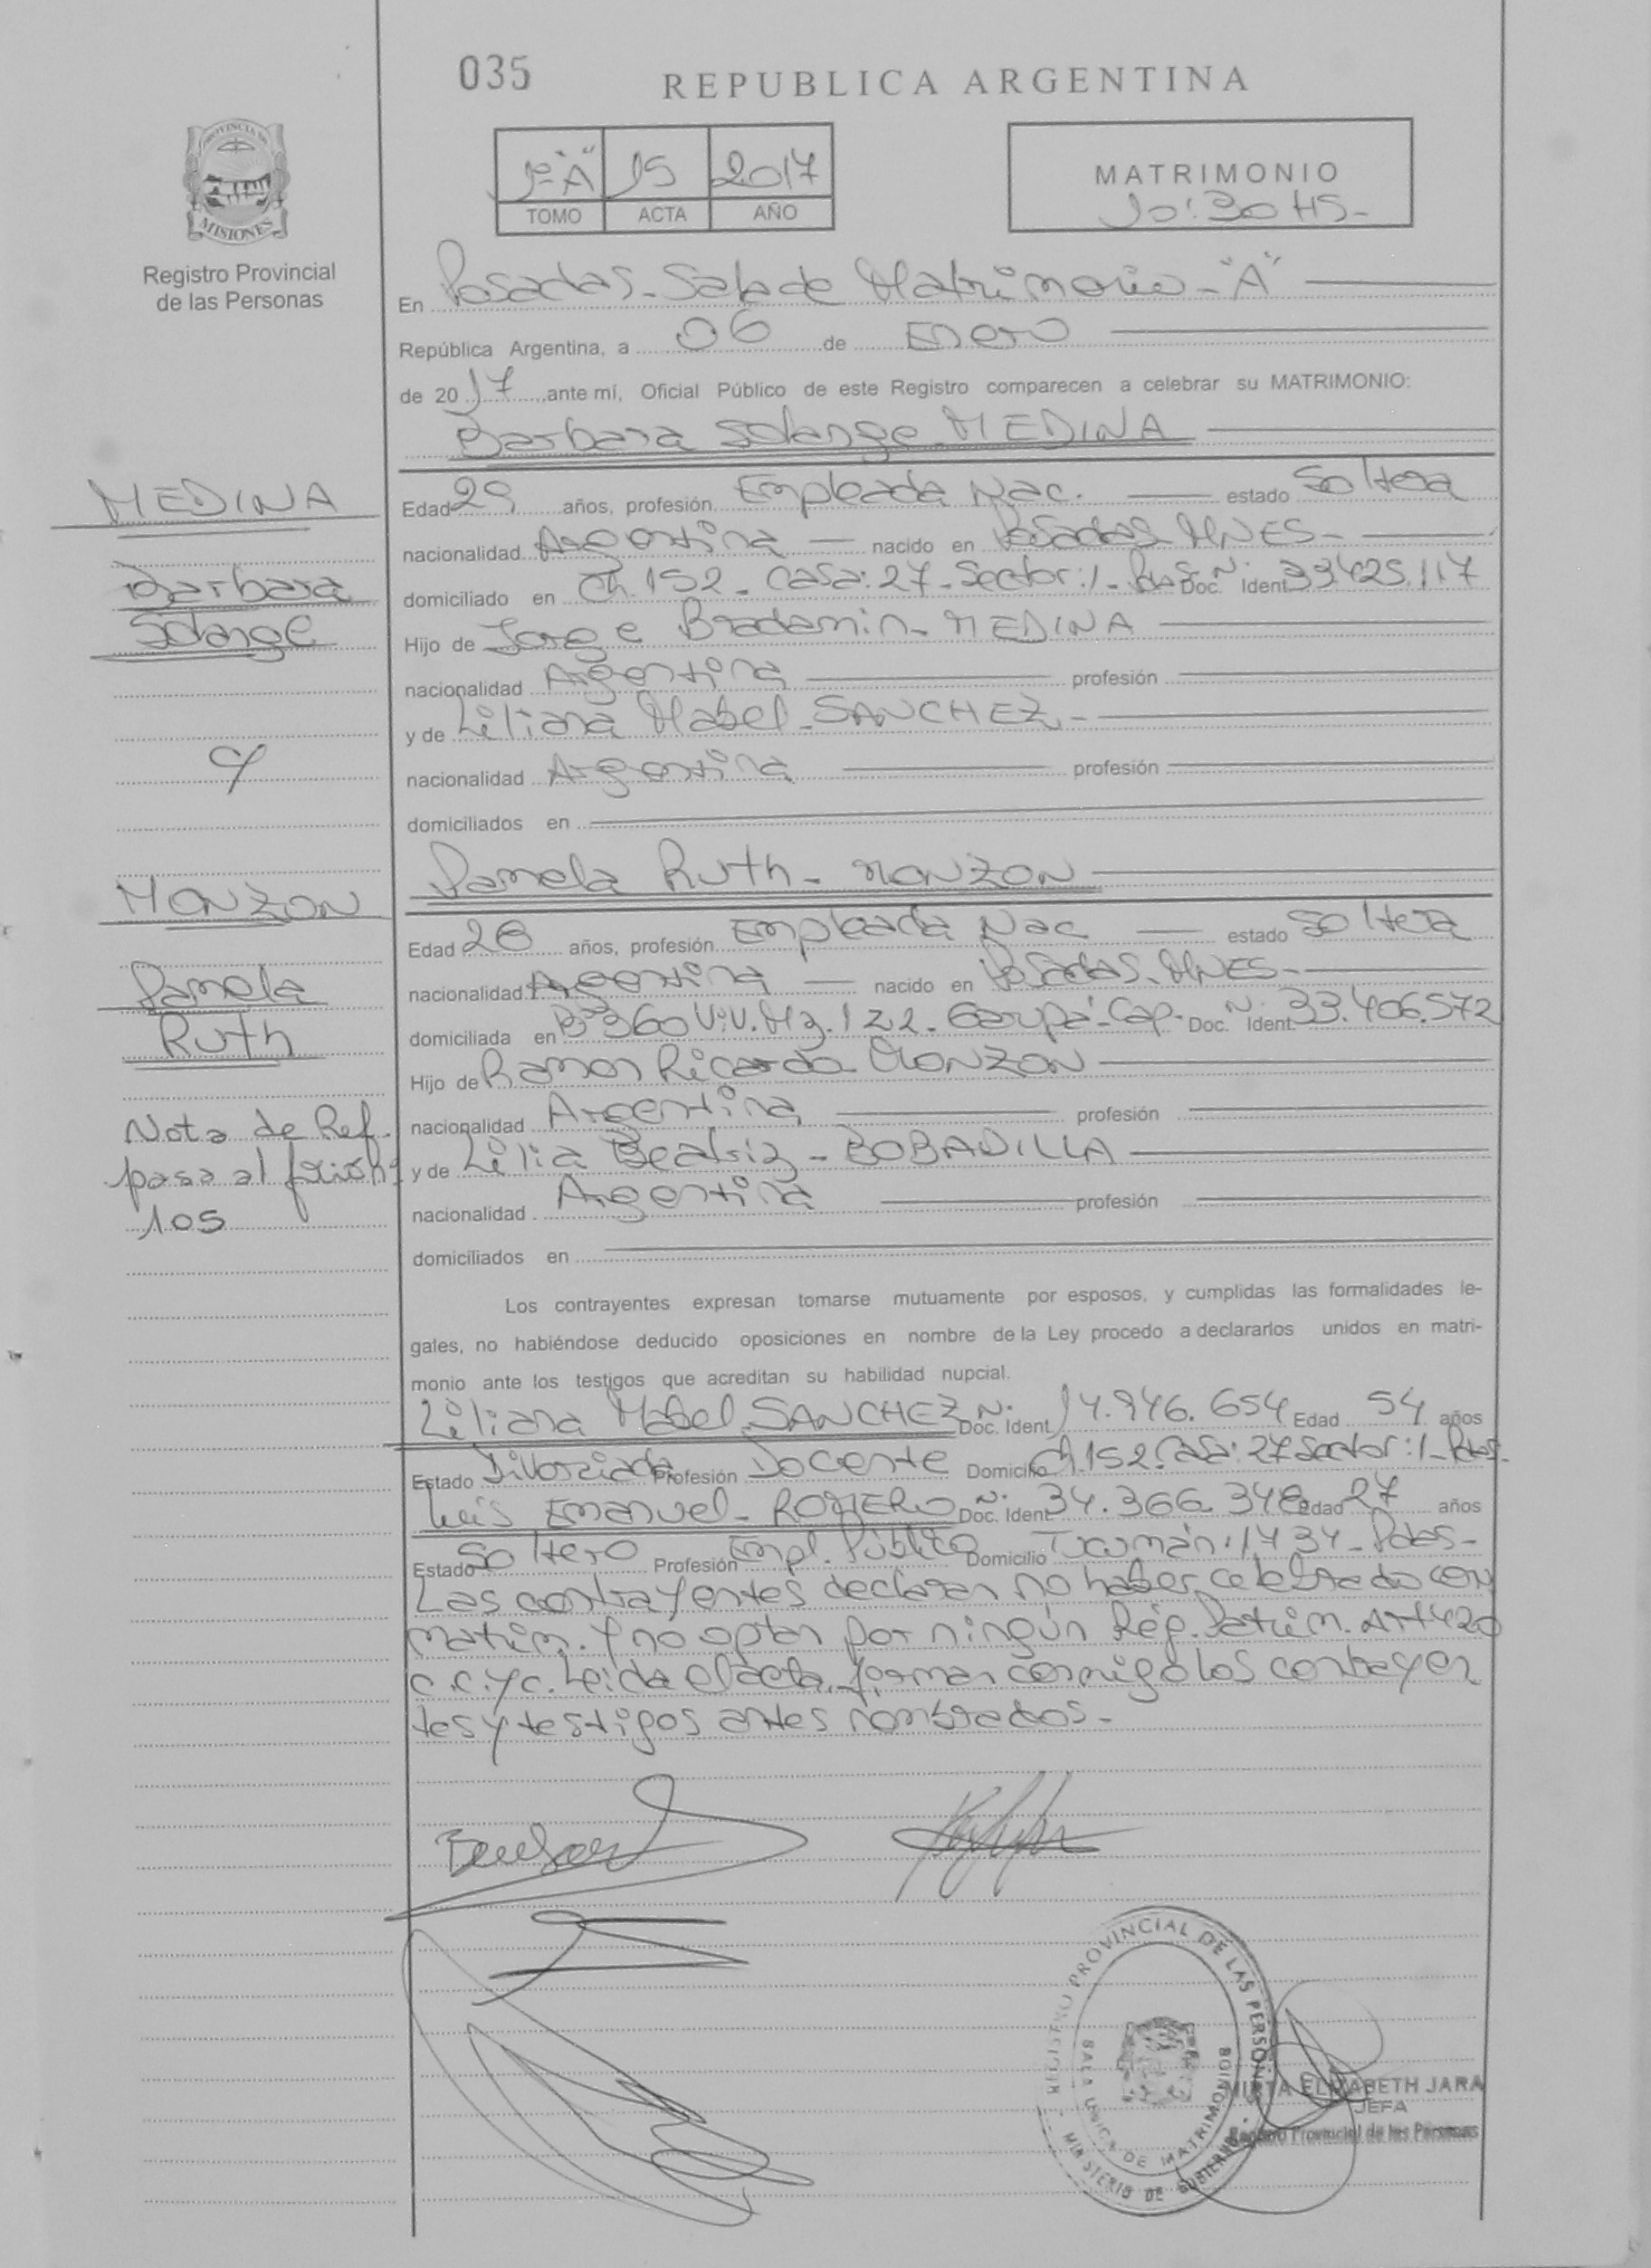 035
REPUBLICA ARGENTINA
PROVINCIA DE
MISIONES
Registro Provincial
de las Personas
1º "A" 15 2017
TOMO ACTA AÑO
MATRIMONIO
10:30 HS-
En Posadas-Sala de Matrimonio-"A"
República Argentina, a 06 de Enero
de 2017 ante mí, Oficial Público de este Registro comparecen a celebrar su MATRIMONIO:
Barbara Solange MEDINA
MEDINA
Barbara
Solange
Edad 29 años, profesión Empleada Nac. estado Soltera
nacionalidad Argentina nacido en Posadas MNES-
domiciliado en Ch.152-Casa:27-Sector:1-Pdas Doc. Nº Ident 33.425.117
Hijo de Jorge Bradamin-MEDINA
nacionalidad Argentina profesión
y de Liliana Mabel-SANCHEZ-
nacionalidad Argentina profesión
domiciliados en
c/
Pamela Ruth-MONZON
MONZON
Pamela
Ruth
Edad 28 años, profesión Empleada Nac estado Soltera
nacionalidad Argentina nacido en Posadas-MNES-
domiciliada en Bº360 Viv.Mz.122-Garupá-Cap- Doc. Nº Ident 33.406.572
Hijo de Ramon Ricardo MONZON
nacionalidad Argentina profesión
y de Lilia Beatriz-BOBADILLA
nacionalidad Argentina profesión
domiciliados en
Nota de Ref.
pasa al folio Nº
105
Los contrayentes expresan tomarse mutuamente por esposos, y cumplidas las formalidades le-
gales, no habiéndose deducido oposiciones en nombre de la Ley procedo a declararlos unidos en matri-
monio ante los testigos que acreditan su habilidad nupcial.
Liliana Mabel-SANCHEZ Doc. Nº Ident 14.946.654 Edad 54 años
Estado Divorciada Profesión Docente Domicilio Ch.152.Casa:27 Sector:1-Pdas-
Luis Emanuel-ROMERO Doc. Nº Ident 34.366.348 Edad 27 años
Estado Soltero Profesión Empl. Público Domicilio Tucumán:1734-Pdas-
Las contrayentes declaran no haber celebrado con
matrim. y no optan por ningún Rég. Patrim. Art 420
C.C.yC. Leida el acta, firman conmigo los contrayen
tes y testigos antes nombrados-
REGISTRO PROVINCIAL DE LAS PERSONAS
SALA UNICA DE MATRIMONIOS
MINISTERIO DE GOBIERNO
ELIZABETH JARA
JEFA
Registro Provincial de las Personas